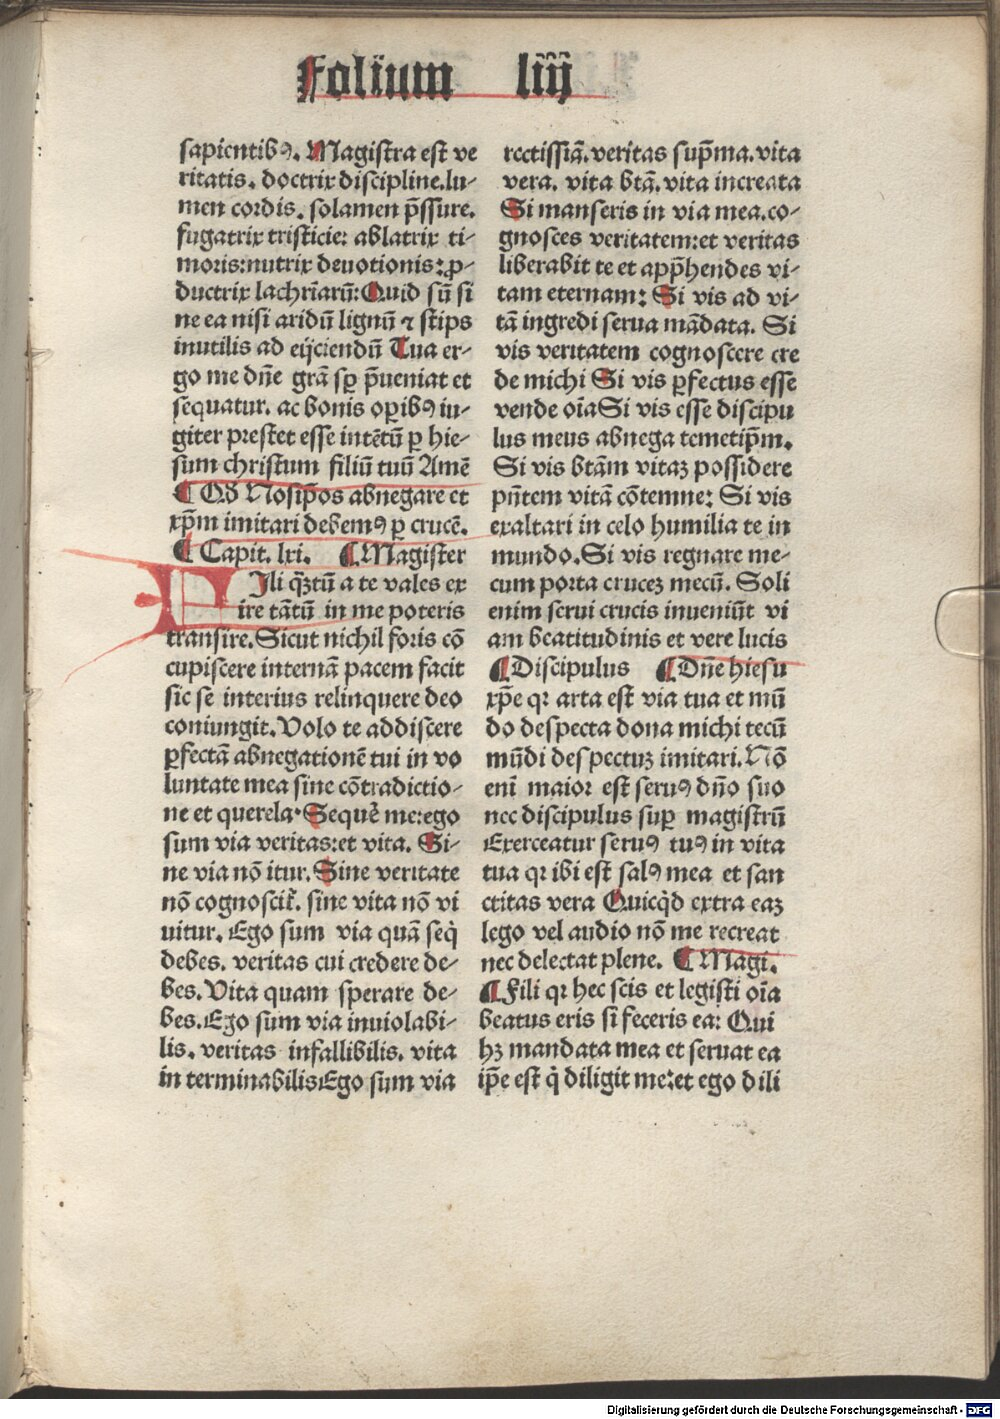 Folium liiij
sapientibꝰ. Magistra est ve
ritatis. doctrix discipline.lu-
men cordis. solamen p̄ssure.
fugatrix tristicie: ablatrix ti-
moris:nutrix deuotionis: ꝓ-
ductrix lachrīarū: Quid sū si
ne ea nisi aridū lignū ⁊ stips
inutilis ad eijciendū Tua er-
go me dn̄e grā sꝑ p̄ueniat et
sequatur. ac bonis oꝑibꝰ iu-
giter prestet esse intētū ꝑ hie-
sum christum filiū tuū Amē
¶ Qḋ Nosip̄os abnegare et
xp̄m imitari debemꝰ ꝑ crucē.
¶ Capit. lxi. ¶ Magister
FIli q̄ꝫtū a te vales ex
ire tātū in me poteris
transire. Sicut nichil foris cō
cupiscere internā pacem facit
sic se interius relinquere deo
coniungit. Volo te addiscere
ꝑfectā abnegationē tui in vo
luntate mea sine cōtradictio-
ne et querela. Sequē me:ego
sum via veritas:et vita. Si-
ne via nō itur. Sine veritate
nō cognoscit̄. sine vita nō vi
uitur. Ego sum via quā seq̇
debes. veritas cui credere de-
bes. Vita quam sperare de-
bes. Ego sum via inuiolabi-
lis. veritas infallibilis. vita
in terminabilis:Ego sum via
rectissiā. veritas sup̄ma. vita
vera. vita btā. vita increata
Si manseris in via mea. co-
gnosces veritatem:et veritas
liberabit te et app̄hendes vi-
tam eternam: Si vis ad vi-
tā ingredi serua mādata. Si
vis veritatem cognoscere cre
de michi Si vis ꝑfectus esse
vende oīa Si vis esse discipu
lus meus abnega temetip̄m.
Si vis btām vitaꝫ possidere
pn̄tem vitā cōtemne: Si vis
exaltari in celo humilia te in
mundo. Si vis regnare me-
cum porta cruceꝫ mecū. Soli
enim serui crucis inueniūt vi
am beatitudinis et vere lucis
¶ Discipulus ¶ Dn̄e hiesu
xp̄e qꝛ arta est via tua et mū
do despecta dona michi tecū
mūdi despectuꝫ imitari. Nō
enī maior est seruꝰ dn̄o suo
nec discipulus suꝑ magistrū
Exerceatur seruꝰ tuꝰ in vita
tua qꝛ ibi est salꝰ mea et san
ctitas vera Quicq̇d extra eaꝫ
lego vel audio nō me recreat
nec delectat plene. ¶ Magi.
¶ Fili qꝛ hec scis et legisti oīa
beatus eris si feceris ea: Qui
hꝫ mandata mea et seruat ea
ip̄e est q̇ diligit me:et ego dili
Digitalisierung gefördert durch die Deutsche Forschungsgemeinschaft - DFG